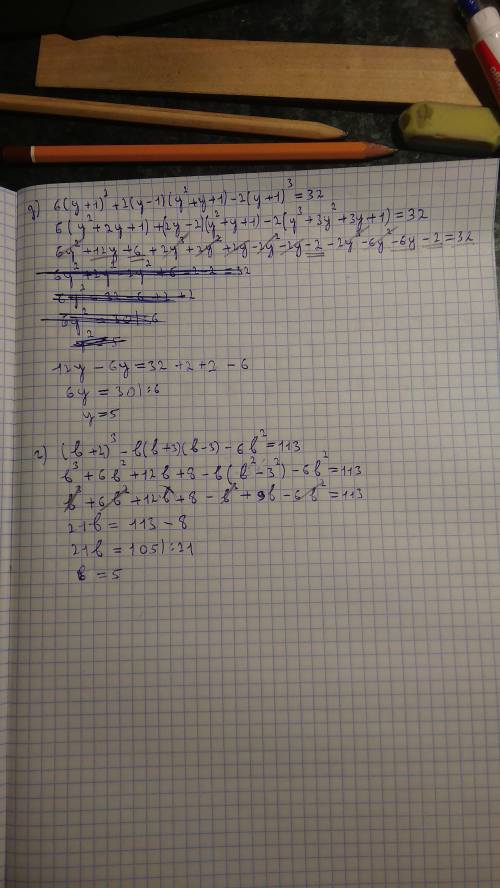 д) 6(y+1)² + 2(y-1)(y²+y+1) - 2(y+1)³ = 32
6(y²+2y+1) + (2y-2)(y²+y+1) - 2(y³+3y²+3y+1) = 32
6y² + 12y + 6 + 2y³ + 2y² + 2y - 2y² - 2y - 2 - 2y³ - 6y² - 6y - 2 = 32
12y - 6y = 32 + 2 + 2 - 6
6y = 30 |:6
y = 5
г) (b+2)³ - b(b+3)(b-3) - 6b² = 113
b³ + 6b² + 12b + 8 - b(b²-3²) - 6b² = 113
b³ + 6b² + 12b + 8 - b³ + 9b - 6b² = 113
21b = 113 - 8
21b = 105 |:21
b = 5